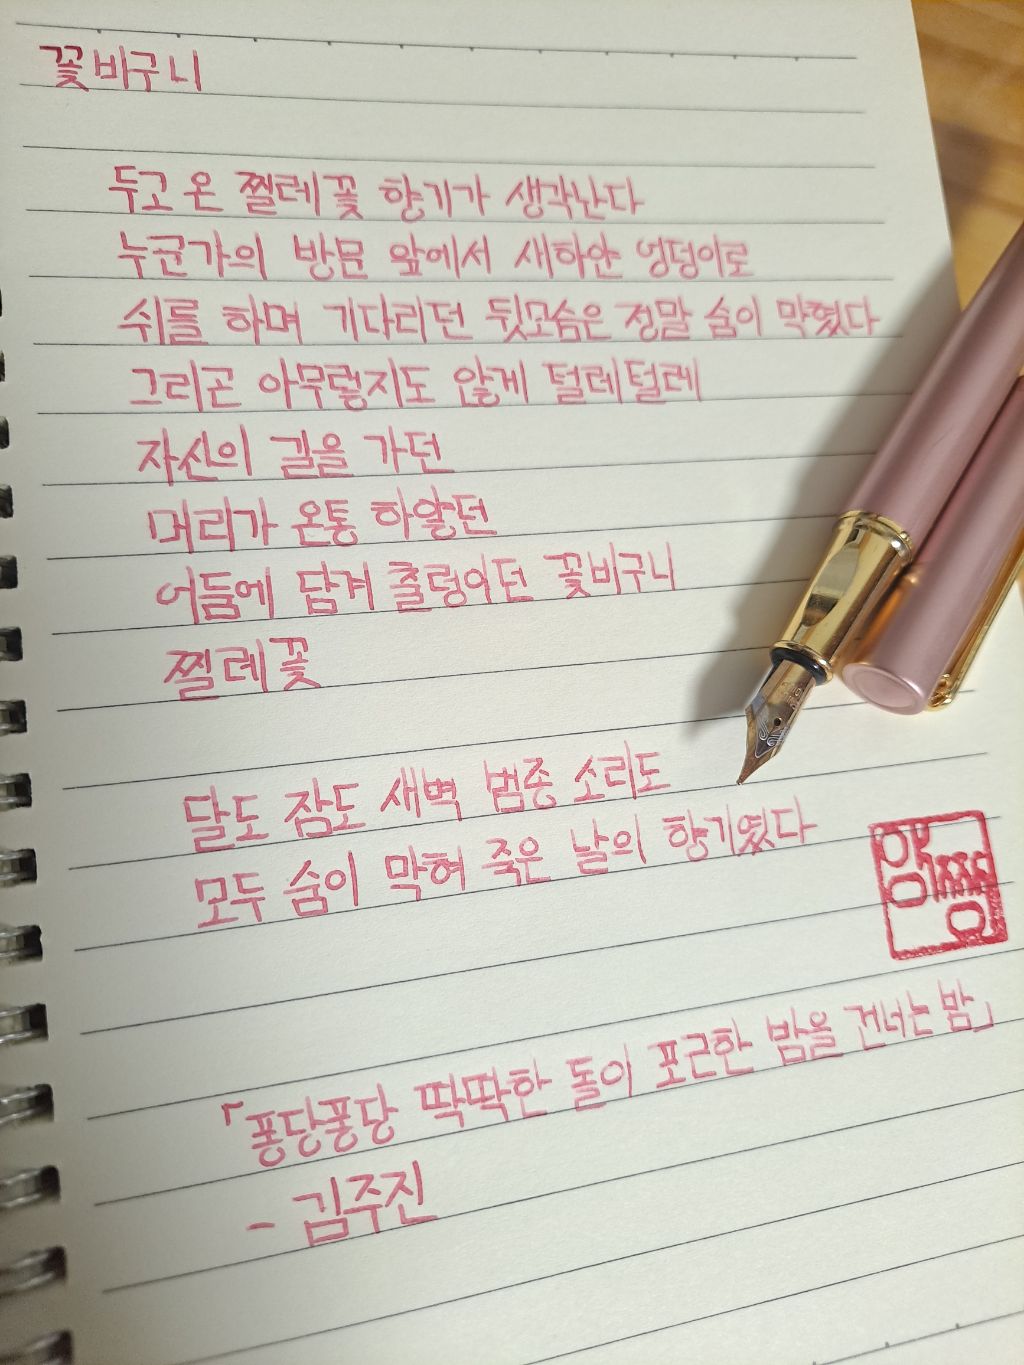 꽃비구니
두고 온 찔레꽃 향기가 생각난다
누군가의 방문 앞에서 새하얀 엉덩이로
쉬를 하며 기다리던 뒷모습은 정말 숨이 막혔다
그리곤 아무렇지도 않게 털레털레
자신의 길을 가던
머리가 온통 하얗던
어둠에 담겨 출렁이던 꽃비구니
찔레꽃
달도 잠도 새벽 범종 소리도
모두 숨이 막혀 죽은 날의 향기였다
「퐁당퐁당 딱딱한 돌이 포근한 밤을 건너는 밤」
- 김주진